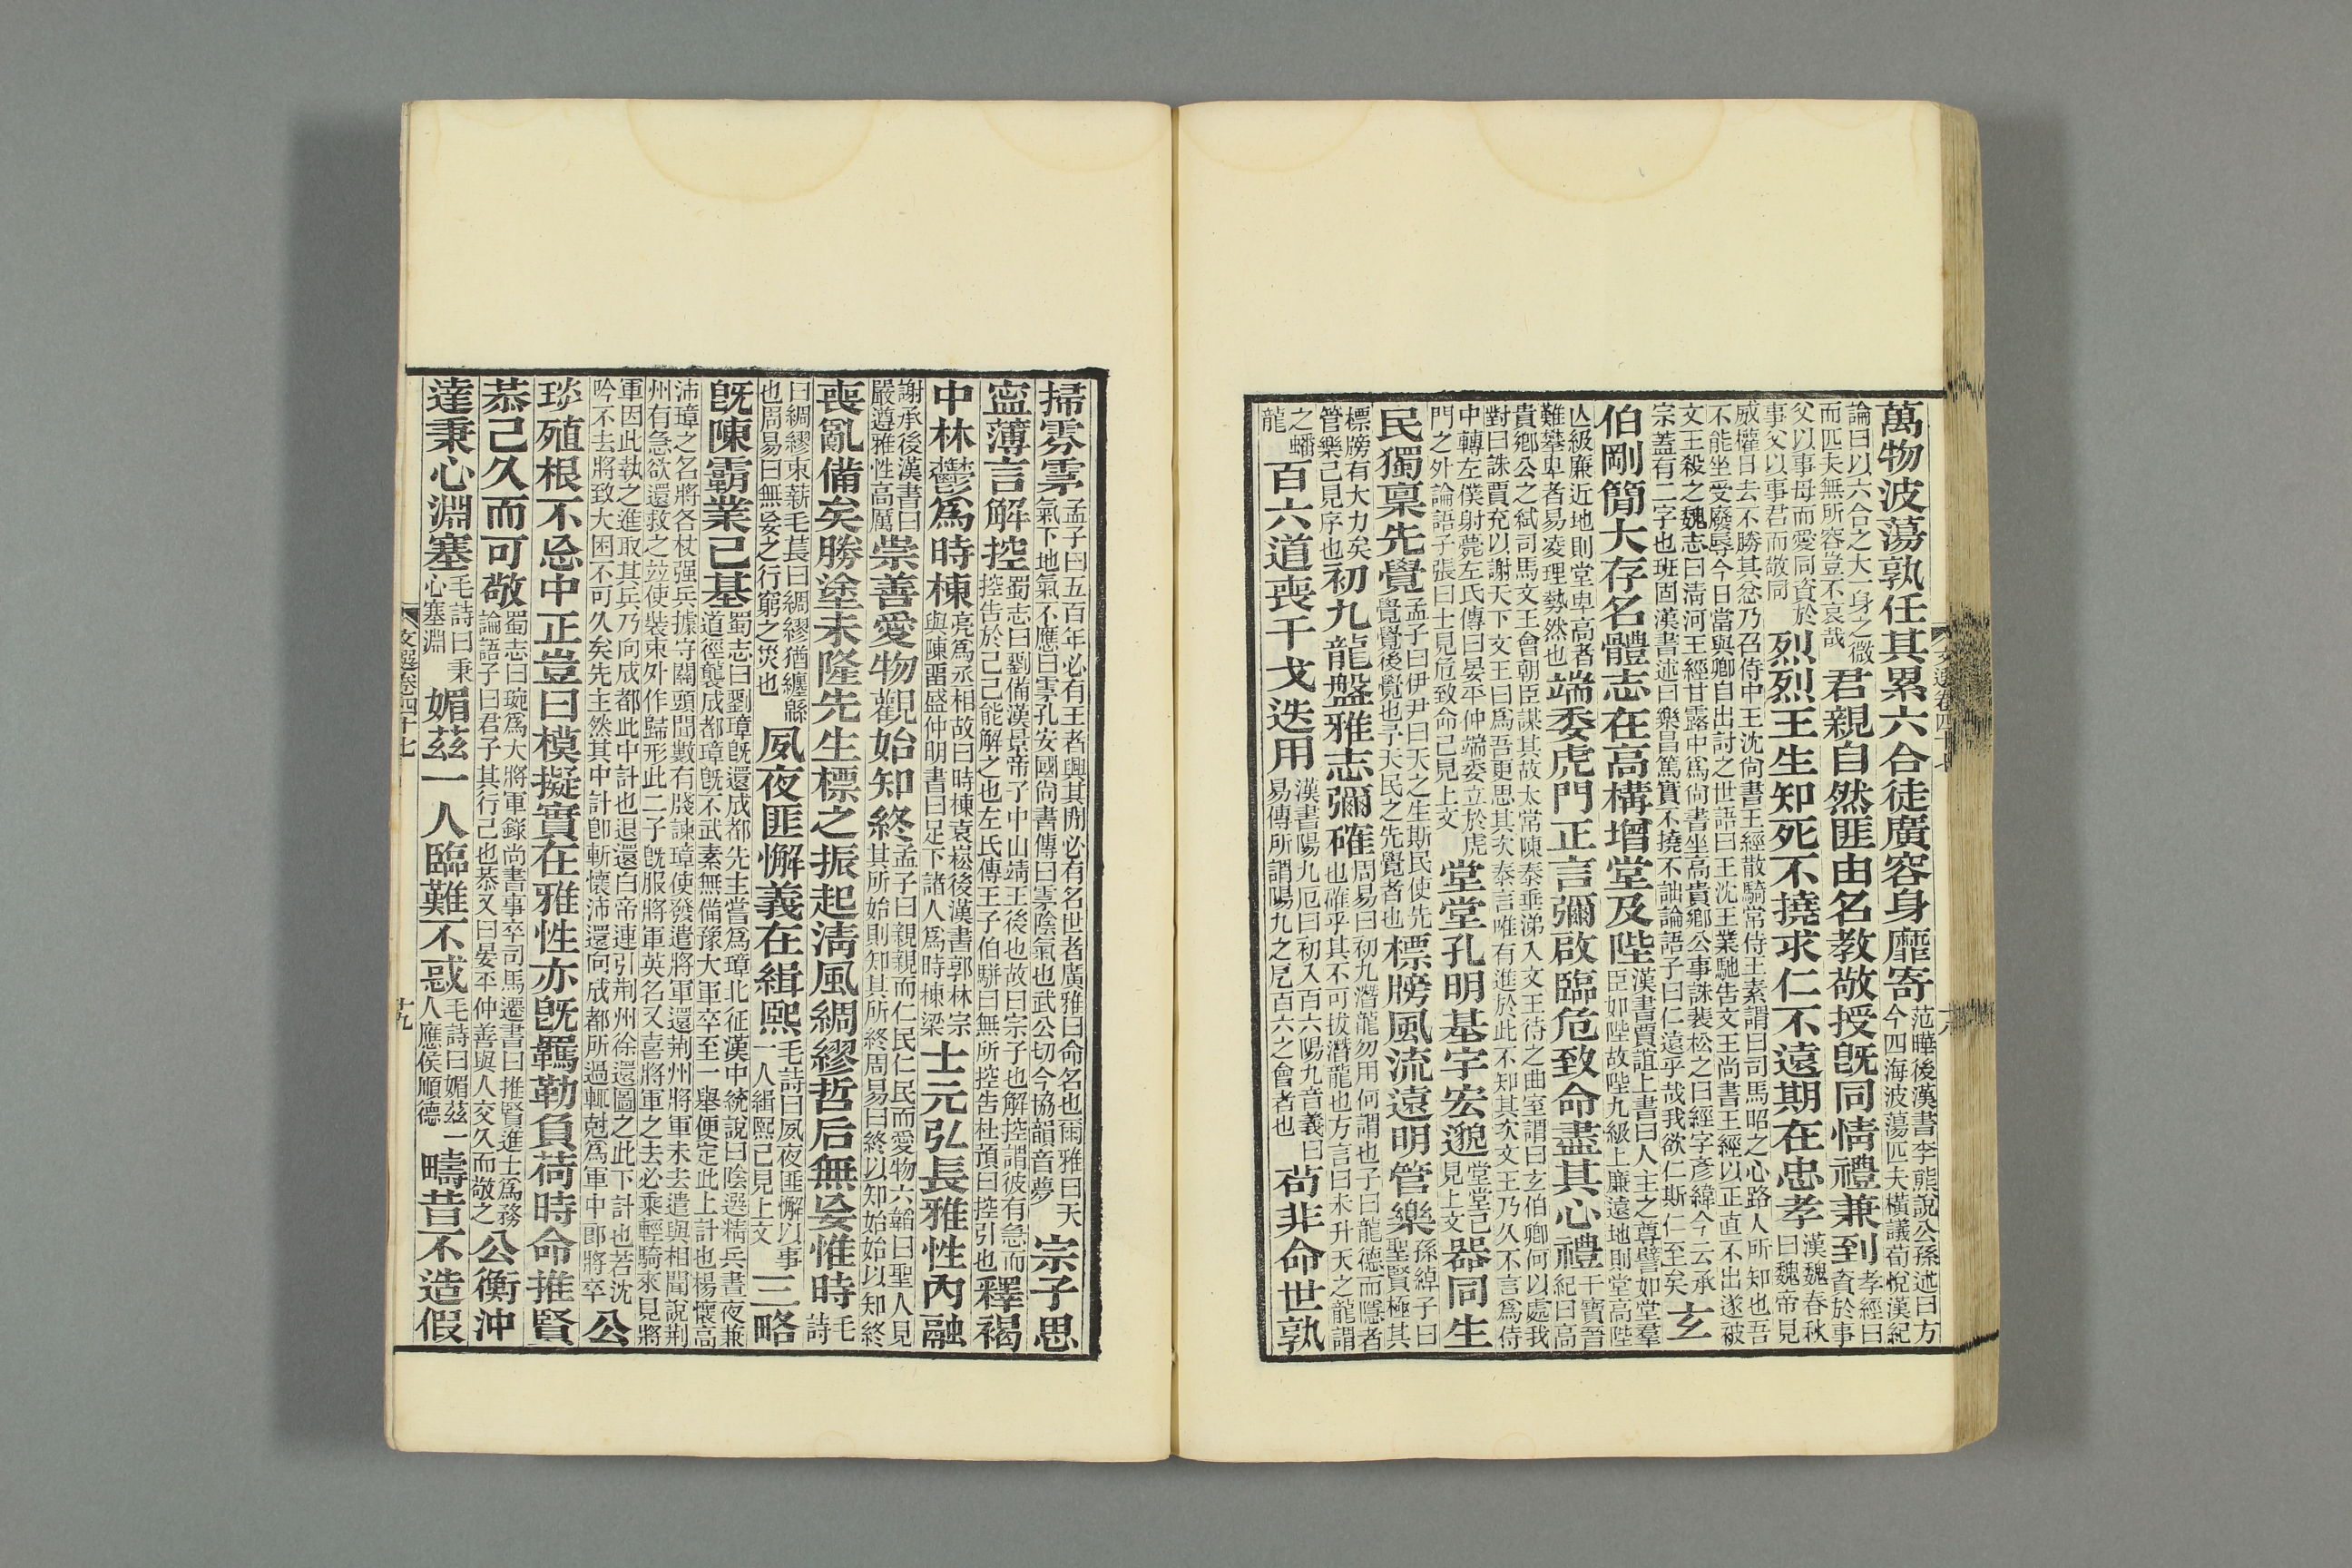 萬物波蕩孰任其累六合徒廣容身靡寄
范曄後漢書李熊說公孫述曰方
今四海波蕩匹夫橫議荀悅漢紀
論曰以六合之大一身之微
而匹夫無所容豈不哀哉
君親自然匪由名教敬授旣同情禮兼到
孝經曰
資於事
父以事母而愛同資於
事父以事君而敬同
烈烈王生知死不撓求仁不遠期在忠孝
漢魏春秋
曰魏帝見
威權日去不勝其忿乃召侍中王沈尙書王經散騎常侍王素謂曰司馬昭之心路人所知也吾
不能坐受廢辱今日當與卿自出討之世語曰王沈王業馳告文王尙書王經以正直不出遂被
文王殺之魏志曰淸河王經甘露中爲尙書坐高貴鄉公事誅裴松之曰經字彥緯今云承
宗蓋有二字也班固漢書述曰樂昌篤實不撓不詘論語子曰仁遠乎哉我欲仁斯仁至矣
玄
伯剛簡大存名體志在高構增堂及陛
漢書賈誼上書曰人主之尊譬如堂羣
臣如陛故陛九級上廉遠地則堂高陛
亾級廉近地則堂卑高者
難攀卑者易凌理勢然也
端委虎門正言彌啟臨危致命盡其心禮
干寶晉
紀曰高
貴鄉公之弒司馬文王會朝臣謀其故太常陳泰垂涕入文王待之曲室謂曰玄伯卿何以處我
對曰誅賈充以謝天下文王曰爲吾更思其次泰言唯有進於此不知其次文王乃久不言爲侍
中轉左僕射薨左氏傳曰晏平仲端委立於虎
門之外論語子張曰士見危致命已見上文
堂堂孔明基宇宏邈
堂堂已
見上文
器同生
民獨稟先覺
孟子曰伊尹曰天之生斯民使先
覺覺後覺也予天民之先覺者也
標牓風流遠明管樂
孫綽子曰
聖賢極其
標牓有大力矣
管樂已見序也
初九龍盤雅志彌確
周易曰初九潛龍勿用何謂也子曰龍德而隱者
也確乎其不可拔潛龍也方言曰未升天之龍謂
之蟠
龍
百六道喪干戈迭用
漢書陽九厄曰初入百六陽九音義曰
易傳所謂陽九之戹百六之會者也
苟非命世孰
掃雰雺
孟子曰五百年必有王者興其閒必有名世者廣雅曰命名也爾雅曰天
氣下地氣不應曰雺孔安國尙書傳曰雺陰氣也武公切今協韻音夢
宗子思
寍薄言解控
蜀志曰劉備漢景帝子中山靖王後也故曰宗子也解控謂彼有急而
控告於己己能解之也左氏傳王子伯駢曰無所控告杜預曰控引也
釋褐
中林鬱爲時棟
亮爲丞相故曰時棟袁崧後漢書郭林宗
與陳畱盛仲明書曰足下諸人爲時棟梁
士元弘長雅性內融
謝承後漢書曰
嚴遵雅性高厲
崇善愛物觀始知終
孟子曰親親而仁民仁民而愛物六韜曰聖人見
其所始則知其所終周易曰終以知始始以知終
喪亂備矣勝塗未隆先生標之振起淸風綢繆哲后無妄惟時
毛
詩
曰綢繆束薪毛萇曰綢繆猶纏緜
也周易曰無妄之行窮之災也
夙夜匪懈義在緝熙
毛詩曰夙夜匪懈以事
一人緝熙已見上文
三略
旣陳霸業已基
蜀志曰劉璋旣還成都先主當爲璋北征漢中統說曰陰選精兵晝夜兼
道徑襲成都璋旣不武素無備豫大軍卒至一舉便定此上計也楊懷高
沛璋之名將各杖强兵據守關頭聞數有牋諫璋使發遣將軍還荆州將軍未去遣與相聞說荆
州有急欲還救之竝使裝束外作歸形此二子旣服將軍英名又喜將軍之去必乘輕騎來見將
軍因此執之進取其兵乃向成都此中計也退還白帝連引荆州徐還圖之此下計也若沈
吟不去將致大困不可久矣先主然其中計卽斬懷沛還向成都所過輒尅爲軍中郎將卒
公
琰殖根不忘中正豈曰模擬實在雅性亦旣羈勒負荷時命推賢
恭己久而可敬
蜀志曰琬爲大將軍錄尙書事卒司馬遷書曰推賢進士爲務
論語子曰君子其行己也恭又曰晏平仲善與人交久而敬之
公衡沖
達秉心淵塞
毛詩曰秉
心塞淵
媚茲一人臨難不惑
毛詩曰媚茲一
人應侯順德
疇昔不造假
文選卷四十七
十九